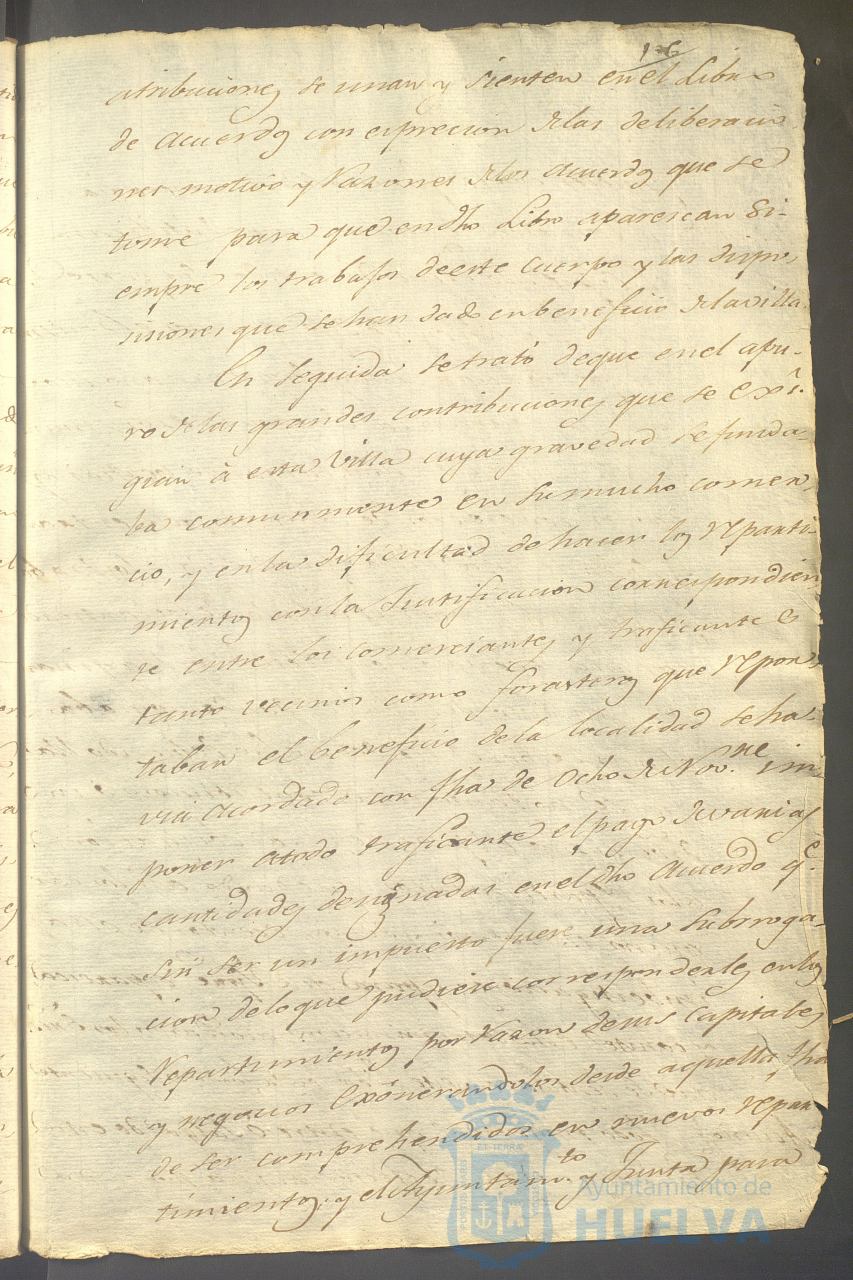 126
atribuciones se unan y sienten en el Libro
de Acuerdos con espresion de las deliberacio
nes motivo y razones de los Acuerdos que se
tome para que en dho Libro aparescan si-
empre los trabajos de este Cuerpo y las dispo
siciones que se han dado en beneficio de la villa.
En seguida se trató de que en el apu-
ro de las grandes contribuciones que se exî-
gian à esta Villa cuya gravedad se funda-
ba comunmente en su mucho comer
cio, y en la dificultad de hacer los reparti-
mientos con la Justificacion correspondien
te entre los comerciantes y traficantes
tanto vecinos como forasteros que repor
taban el beneficio de la localidad se ha
via acordado con fha de Ocho de Nov.ne im
poner a todo traficante el pago de varias
cantidades designadas en el dho Acuerdo q.e
sin ser un impuesto fuese una subrroga-
cion de lo que pudiese corresponderles en los
repartimientos por razon de sus Capitales
y negocios exônerandolos desde aquella fha
de ser comprehendidos en nuevos repar
timientos, y el Ayuntam.to y Junta para
Ayuntamiento de
HUELVA